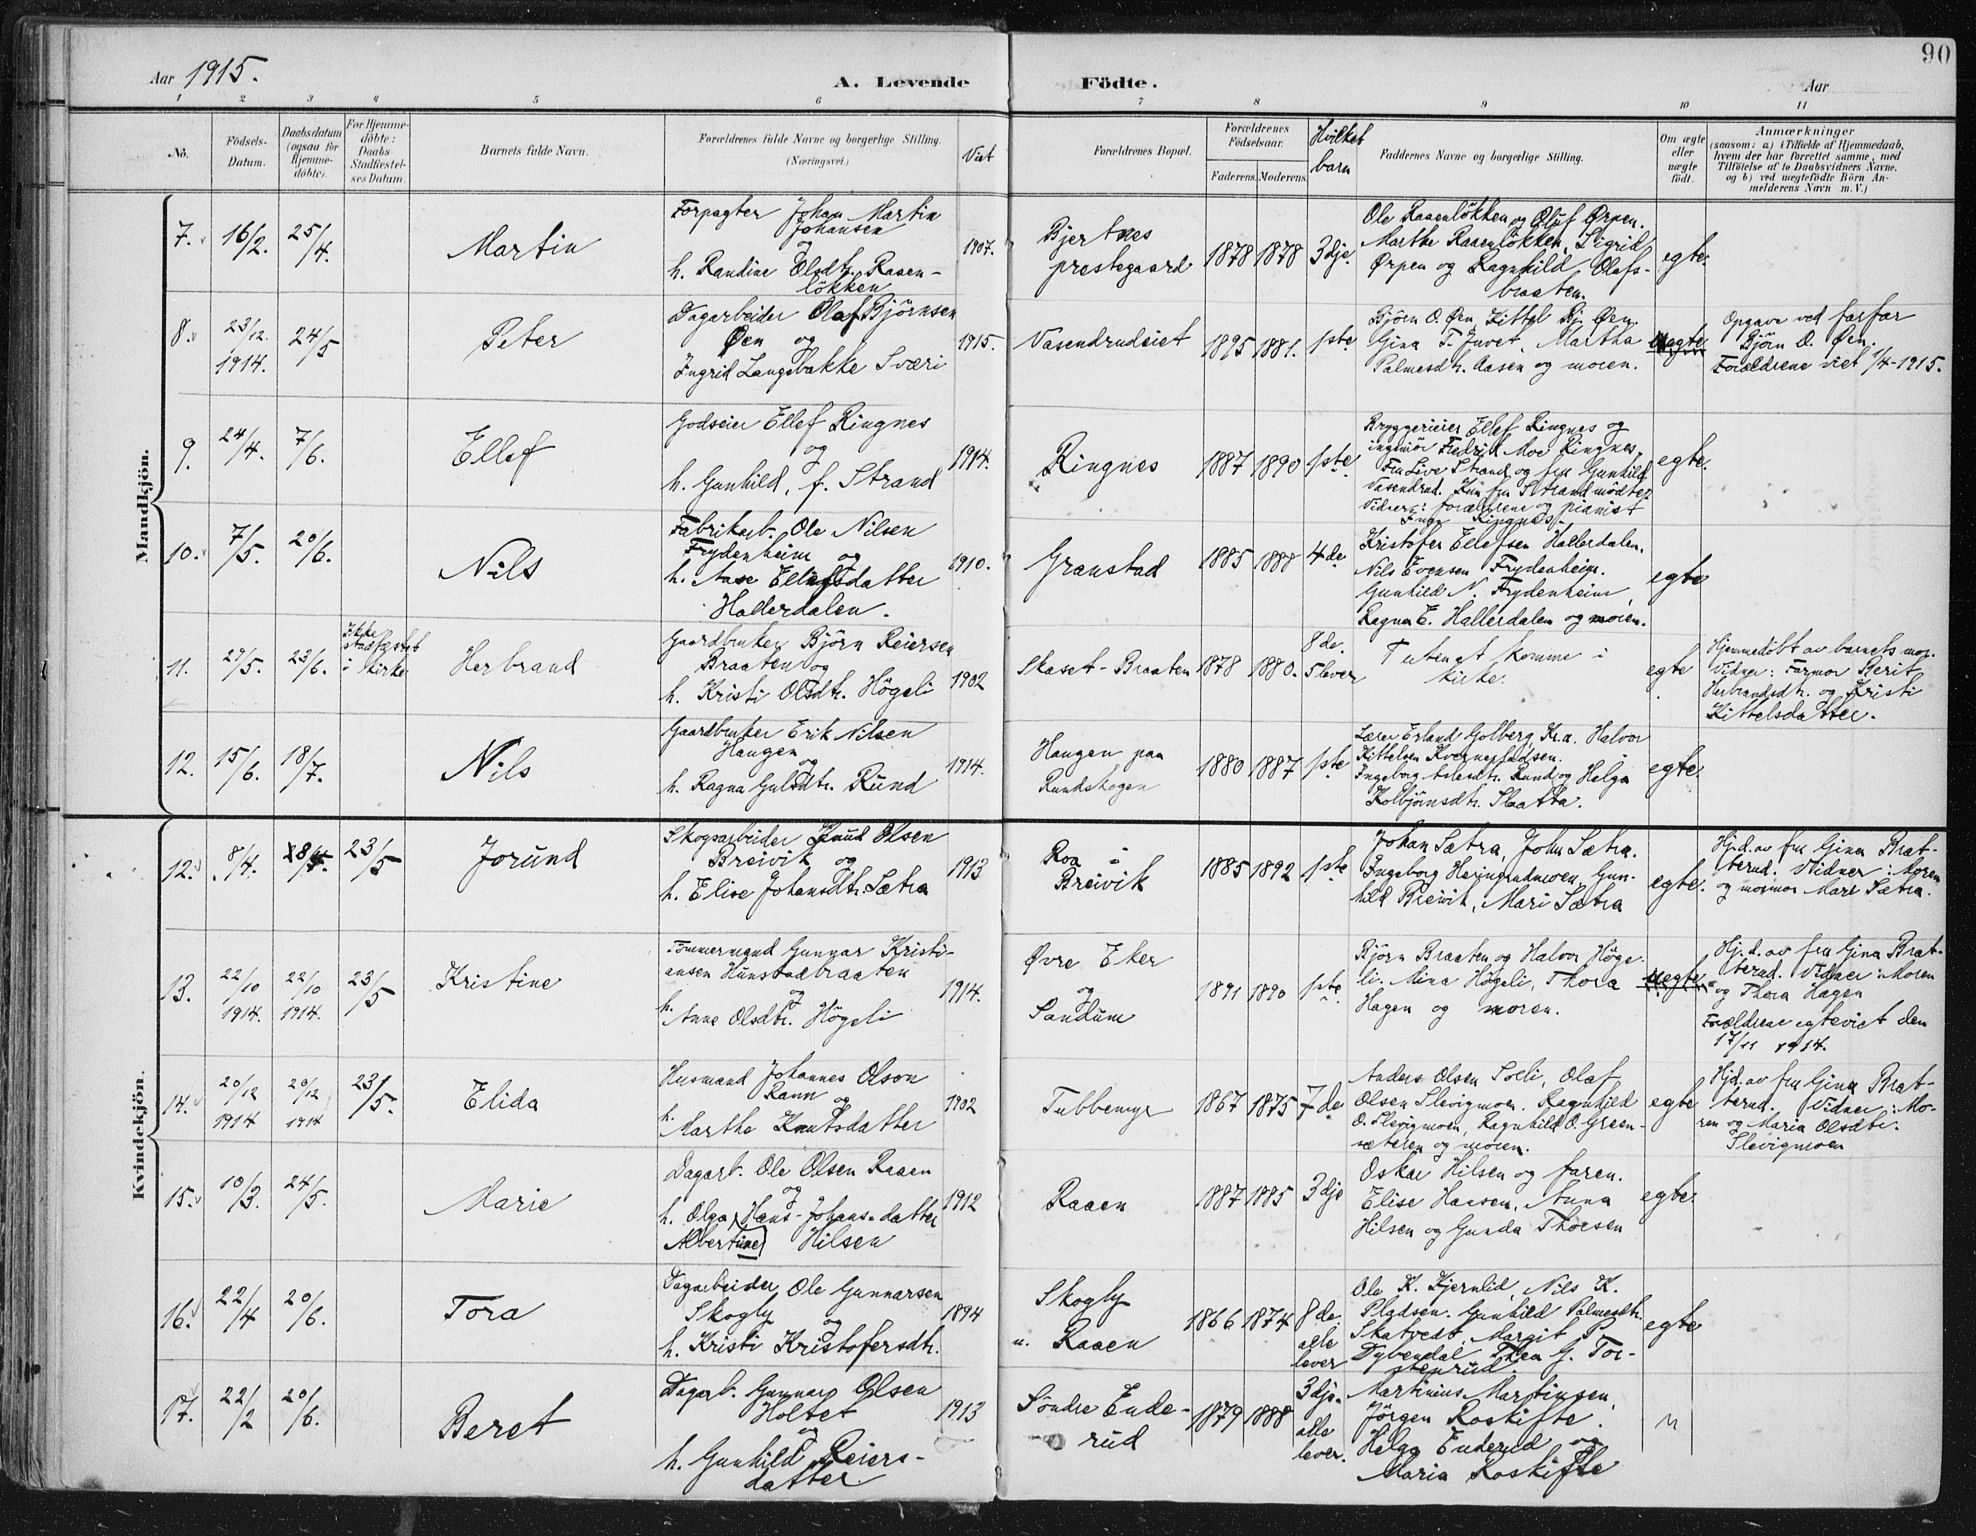 90
Aar 1915.
A. Levende Födte.
Aar
1 2 3 4 5 6 7 8 9 10 11
No.
Födsels-Datum.
Daabsdatum (ogsaa for Hjemme-döbte).
For Hjemme-döbte: Daabs Stadfestel-ses Datum.
Barnets fulde Navn.
Forældrenes fulde Navne og borgerlige Stilling.
(Næringsvei.)
Viet
Forældrenes Bopæl.
Forældrenes Födselsaar.
Faderens. Moderens.
Hvilket barn
Faddernes Navne og borgerlige Stilling.
Om ægte eller uægte födt.
Anmærkninger
(saasom: a) i Tilfælde af Hjemmedaab,
hvem der har forrettet samme, med
Tilföielse af to Daabsvidners Navne.
og b) ved uægtefödte Börn An-
melderens Navn m. V.)
Mandkjön.
7. 16/2. 25/4. Martin
Forpagter Johan Martin
Johansen
og
h. Randine Olsdt. Raaen-
lökken
1907.
Bjertnes
prestegaard
1878 1878 3dje.
Ole Raaenlökken og Oluf Ørpen.
Marthe Raaenlökken, Sigrid
Ørpen og Ragnhild Olafs-
braaten.
egte.
8. 23/12. 1914. 24/5 Peter
Dagarbeider Olaf Björnsen
Øen og
Ingrid Langebakke Sværi
1915.
Vasendrudeiet
1895 1881. 1ste
Björn O. Øen, Kittel Bj. Øen.
Gina T. Juvet, Martha
Palmesdt. Aasen og moren.
uegte
Opgave ved farfar
Björn O. Øen.
Forældrene viet 1/4-1915.
9. 24/4. 7/6. Ellef
Godseier Ellef Ringnes
og
h. Gunhild, f. Strand
1914.
Ringnes
1887 1890 1ste
Bryggerieier Ellef Ringnes og
ingeniör Fredrik Moe Ringnes,
Fru Live Strand og fru Gunhild
Vasendrud. Kun fru Strand mödte.
Vidner: forældrene og pianist
Ringnes.
egte.
10. 7/5. 20/6. Nils
Fabrikarb. Ole Nilsen
Frydenheim og
h. Aase Ellefsdatter
Hallerdalen.
1910.
Granstad
1885 1888 4de
Kristofer Ellefsen Hallerdalen.
Nils Evensen Frydenheim.
Gunhild N. Frydenheim,
Ragna E. Hallerdalen og moren.
egte
11. 27/5. 23/6.
Ikke
stadfæstet
i kirke
Herbrand
Gaardbruker Björn Reiersen
Braaten og
h. Kristi Olsdt. Högeli
1902
Skaset-Braaten
1878 1880.
8de.
5 lever
komme i
kirke.
egte
Hjemmedöbt av barnets mor.
Vidner: Farmor Berit
Herbrandsdt. og Kristi
Kittelsdatter.
12. 15/6. 18/7. Nils
Gaardbruker Erik Nilsen
Haugen
og
h. Ragna Gulsdt. Rund
1914.
Haugen paa
Rundskogen
1880 1887 1ste
Lærer Erland Golberg, Kr.a. Halvor
Kittelsen Kvernepladsen.
Ingeborg Aslesdt. Rund og Helga
Kolbjörnsdt. Slaatta.
egte.
Kvindekjön.
12. 8/4. 23/5 Jorund
Skogsarbeider Knud Olsen
Breivik og
h. Elise Johansdt. Sætra
1913
Roa i
Breivik
1885 1892 1ste
Johan Sætra, John Sætra.
Ingeborg Heringrudmoen, Gun-
hild Breivik, Mari Sætra
egte.
Hjd. av fru Gina Brat-
terud. Vidner: Moren
og mormor Mari Sætra.
13. 22/10 1914. 22/10 1914. 23/5 Kristine
Tömmermand Gunnar Kristi-
ansen Hunstadbraaten
og
h. Anne Olsdt. Högeli
1914.
Øvre Eker
og
Sandum
1891 1890 1ste
Björn Braaten og Halvor Höge-
li. Mina Högeli, Thora
Hagen og moren.
uegte
Hj.d. av fru Gina Brat-
terud. Vidner: Moren
og Thora Hagen
Forældrene egteviet den
17/11 1914.
14. 20/12 1914 20/12 1914 23/5. Elida
Husmand Johannes Olson
Rann og
h. Marthe Knutsdatter
1902
Tubbemyr
1867 1875 7de
Anders Olsen Soli, Olaf
Olsen Slevigmoen. Ragnhild
O. Slevigmoen, Ragnhild O. Green-
sæteren og moren.
egte
Hjd. av fru Gina Brat-
terud. Vidner: Mo-
ren og Maria Olsdtr.
Slevigmoen
15. 10/3. 24/5. Marie
Dagarb. Ole Olsen Raaen
og
h. Olga Hans-Johans-datter
Albertine Hilsen
1912
Raaen
1887 1885 3dje
Oskar Hilsen og faren.
Elise Hansen, Anna
Hilsen og Gunda Thorsen
egte
16. 22/4 20/6. Tora
Dagarbeider Ole Gunnarsen
Skogly og
h. Kristi Kristofersdt.
1894
Skogly
u. Raaen
1866 1874
8de.
alle
lever
Ole K. Kjernlid, Nils K.
Pladsen. Gunhild Palmesdt.
Skatvedt, Margit P.
Dybendal Thea G. Tor-
stenrud.
egte
17. 22/2 20/6. Beret
Dagarb. Gunnar Olsen
Holtet
og
h. Gunhild Reiers-
datter.
1913
Söndre Ende-
rud
1879 1888
3dje.
alle
lever.
Martinius Martinsen,
Jörgen Roskifte.
Helga Enderud og
Maria Roskifte
"